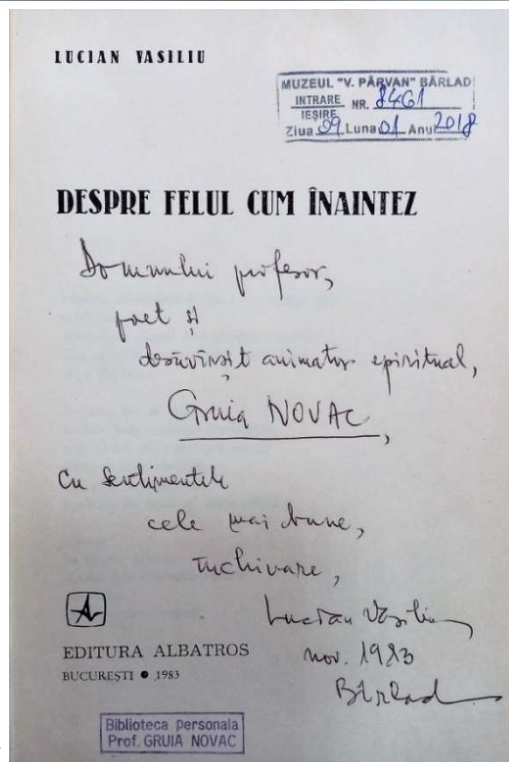 LUCIAN VASILIU
MUZEUL "V. PÂRVAN" BÂRLAD
INTRARE
IEȘIRE
NR. 8461
Ziua 09 Luna 01 Anul 2018
DESPRE FELUL CUM ÎNAINTEZ
Domnului profesor,
poet și
desăvîrșit animator spiritual,
Gruia NOVAC,
Cu sentimentele
cele mai bune,
închinare,
Lucian Vasiliu
nov. 1983
Bîrlad
EDITURA ALBATROS
BUCUREȘTI ● 1983
Biblioteca personala
Prof. GRUIA NOVAC